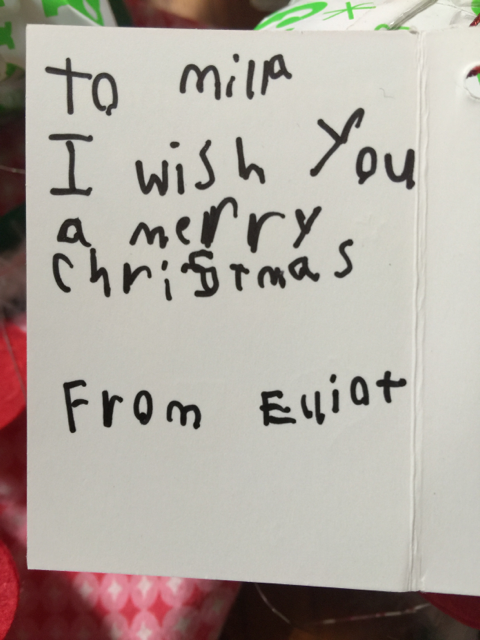 to milla
I wish You
a merry
christmas
From Elliot